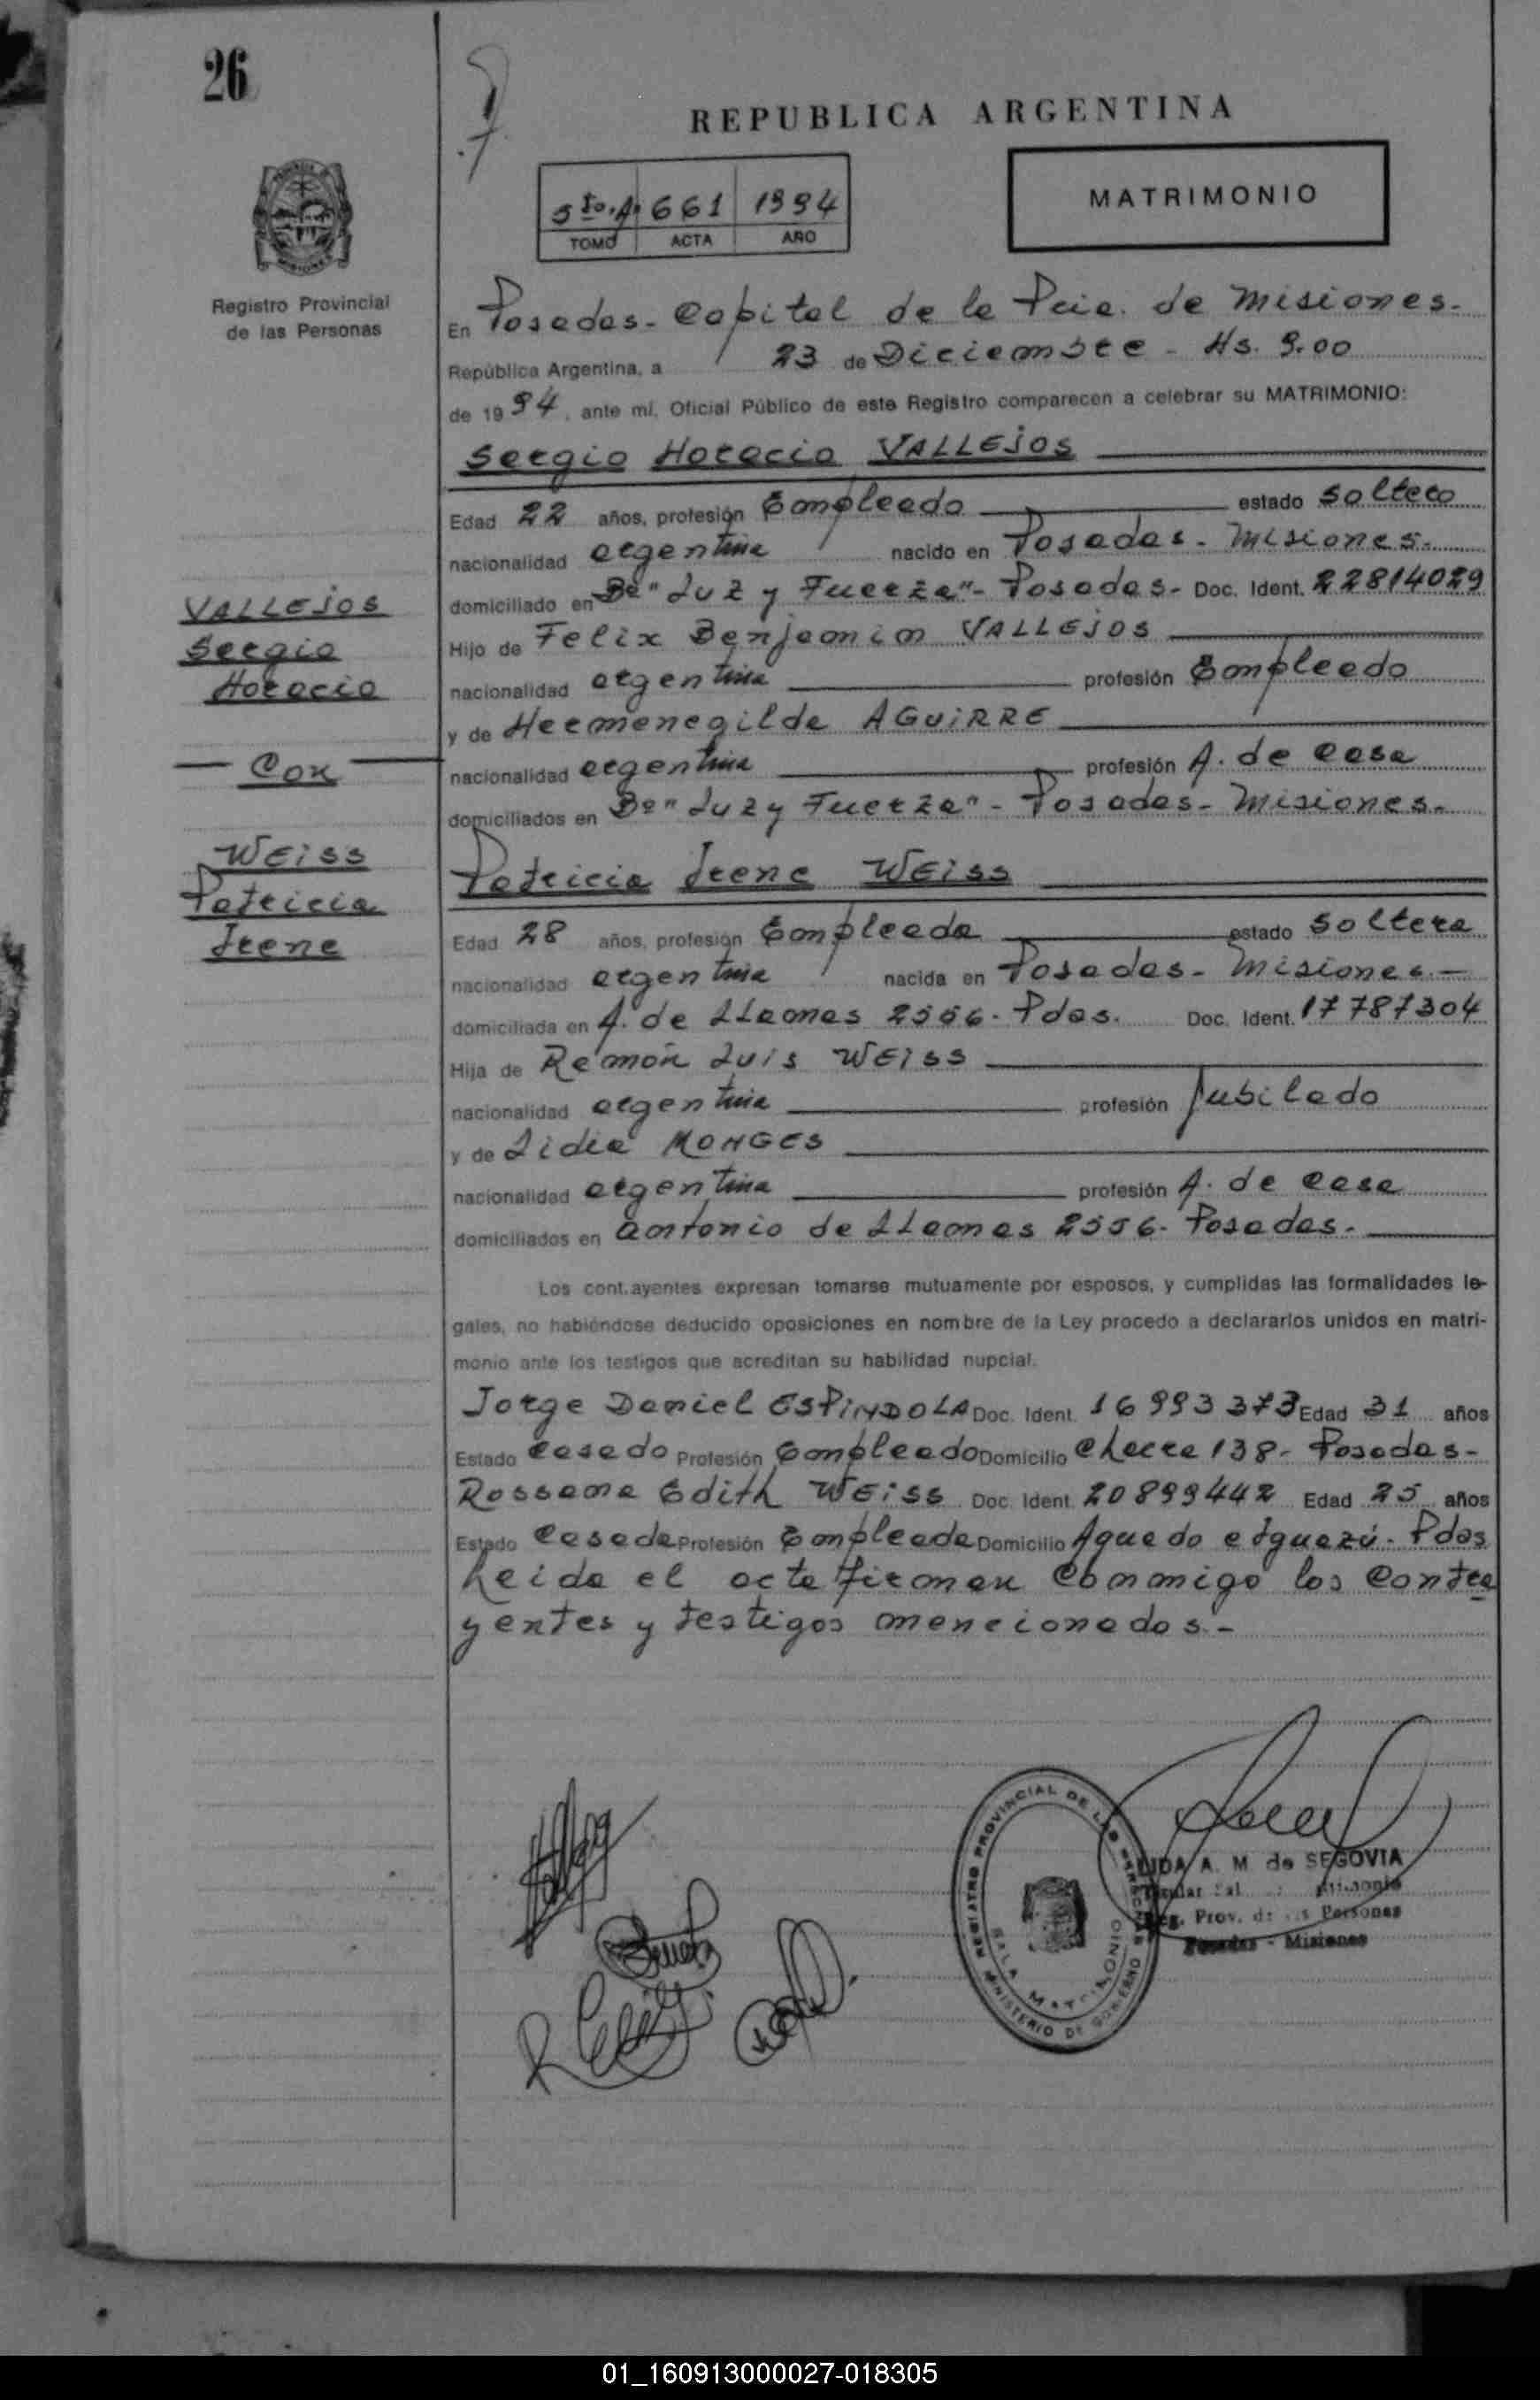 26
REPUBLICA ARGENTINA
MATRIMONIO
5to. A. 661 1994
TOMO ACTA AÑO
Registro Provincial
de las Personas
En Posadas - Capital de la Pcia. de Misiones.-
República Argentina, a 23 de Diciembre - Hs. 9.00
de 1994, ante mí, Oficial Público de este Registro comparecen a celebrar su MATRIMONIO:
Sergio Horacio VALLEJOS
Edad 22 años, profesión Empleado estado soltero
nacionalidad argentina nacido en Posadas - Misiones.
domiciliado en Bº "Luz y Fuerza" - Posadas - Doc. Ident. 22814029
Hijo de Felix Benjamin VALLEJOS
nacionalidad argentina profesión Empleado
y de Hermenegilda AGUIRRE
nacionalidad argentina profesión A. de casa
domiciliados en Bº "Luz y Fuerza" - Posadas - Misiones.
VALLEJOS
Sergio
Horacio
Con
WEISS
Patricia
Irene
Patricia Irene WEISS
Edad 28 años, profesión Empleada estado soltera
nacionalidad argentina nacida en Posadas - Misiones.-
domiciliada en A. de LLamas 2556 - Pdas. Doc. Ident. 17787304
Hija de Ramón Luis WEISS
nacionalidad argentina profesión Jubilado
y de Lidia MONGES
nacionalidad argentina profesión A. de casa
domiciliados en Antonio de LLamas 2556 - Posadas.
Los contrayentes expresan tomarse mutuamente por esposos, y cumplidas las formalidades le-
gales, no habiéndose deducido oposiciones en nombre de la Ley procedo a declararlos unidos en matri-
monio ante los testigos que acreditan su habilidad nupcial.
Jorge Daniel ESPINDOLA Doc. Ident. 16993373 Edad 31 años
Estado Casado Profesión Empleado Domicilio Chacra 138 - Posadas -
Rossana Edith WEISS Doc. Ident. 20899442 Edad 25 años
Estado Casada Profesión Empleada Domicilio Aguado e Iguazú - Pdas
Leida el acta firman conmigo los contra
yentes y testigos mencionados.-
REGISTRO PROVINCIAL DE LAS PERSONAS
SALA MATRIMONIO
MINISTERIO DE GOBIERNO
LIDA A. M. de SEGOVIA
Reg. Prov. de las Personas
Posadas - Misiones
01_160913000027-018305